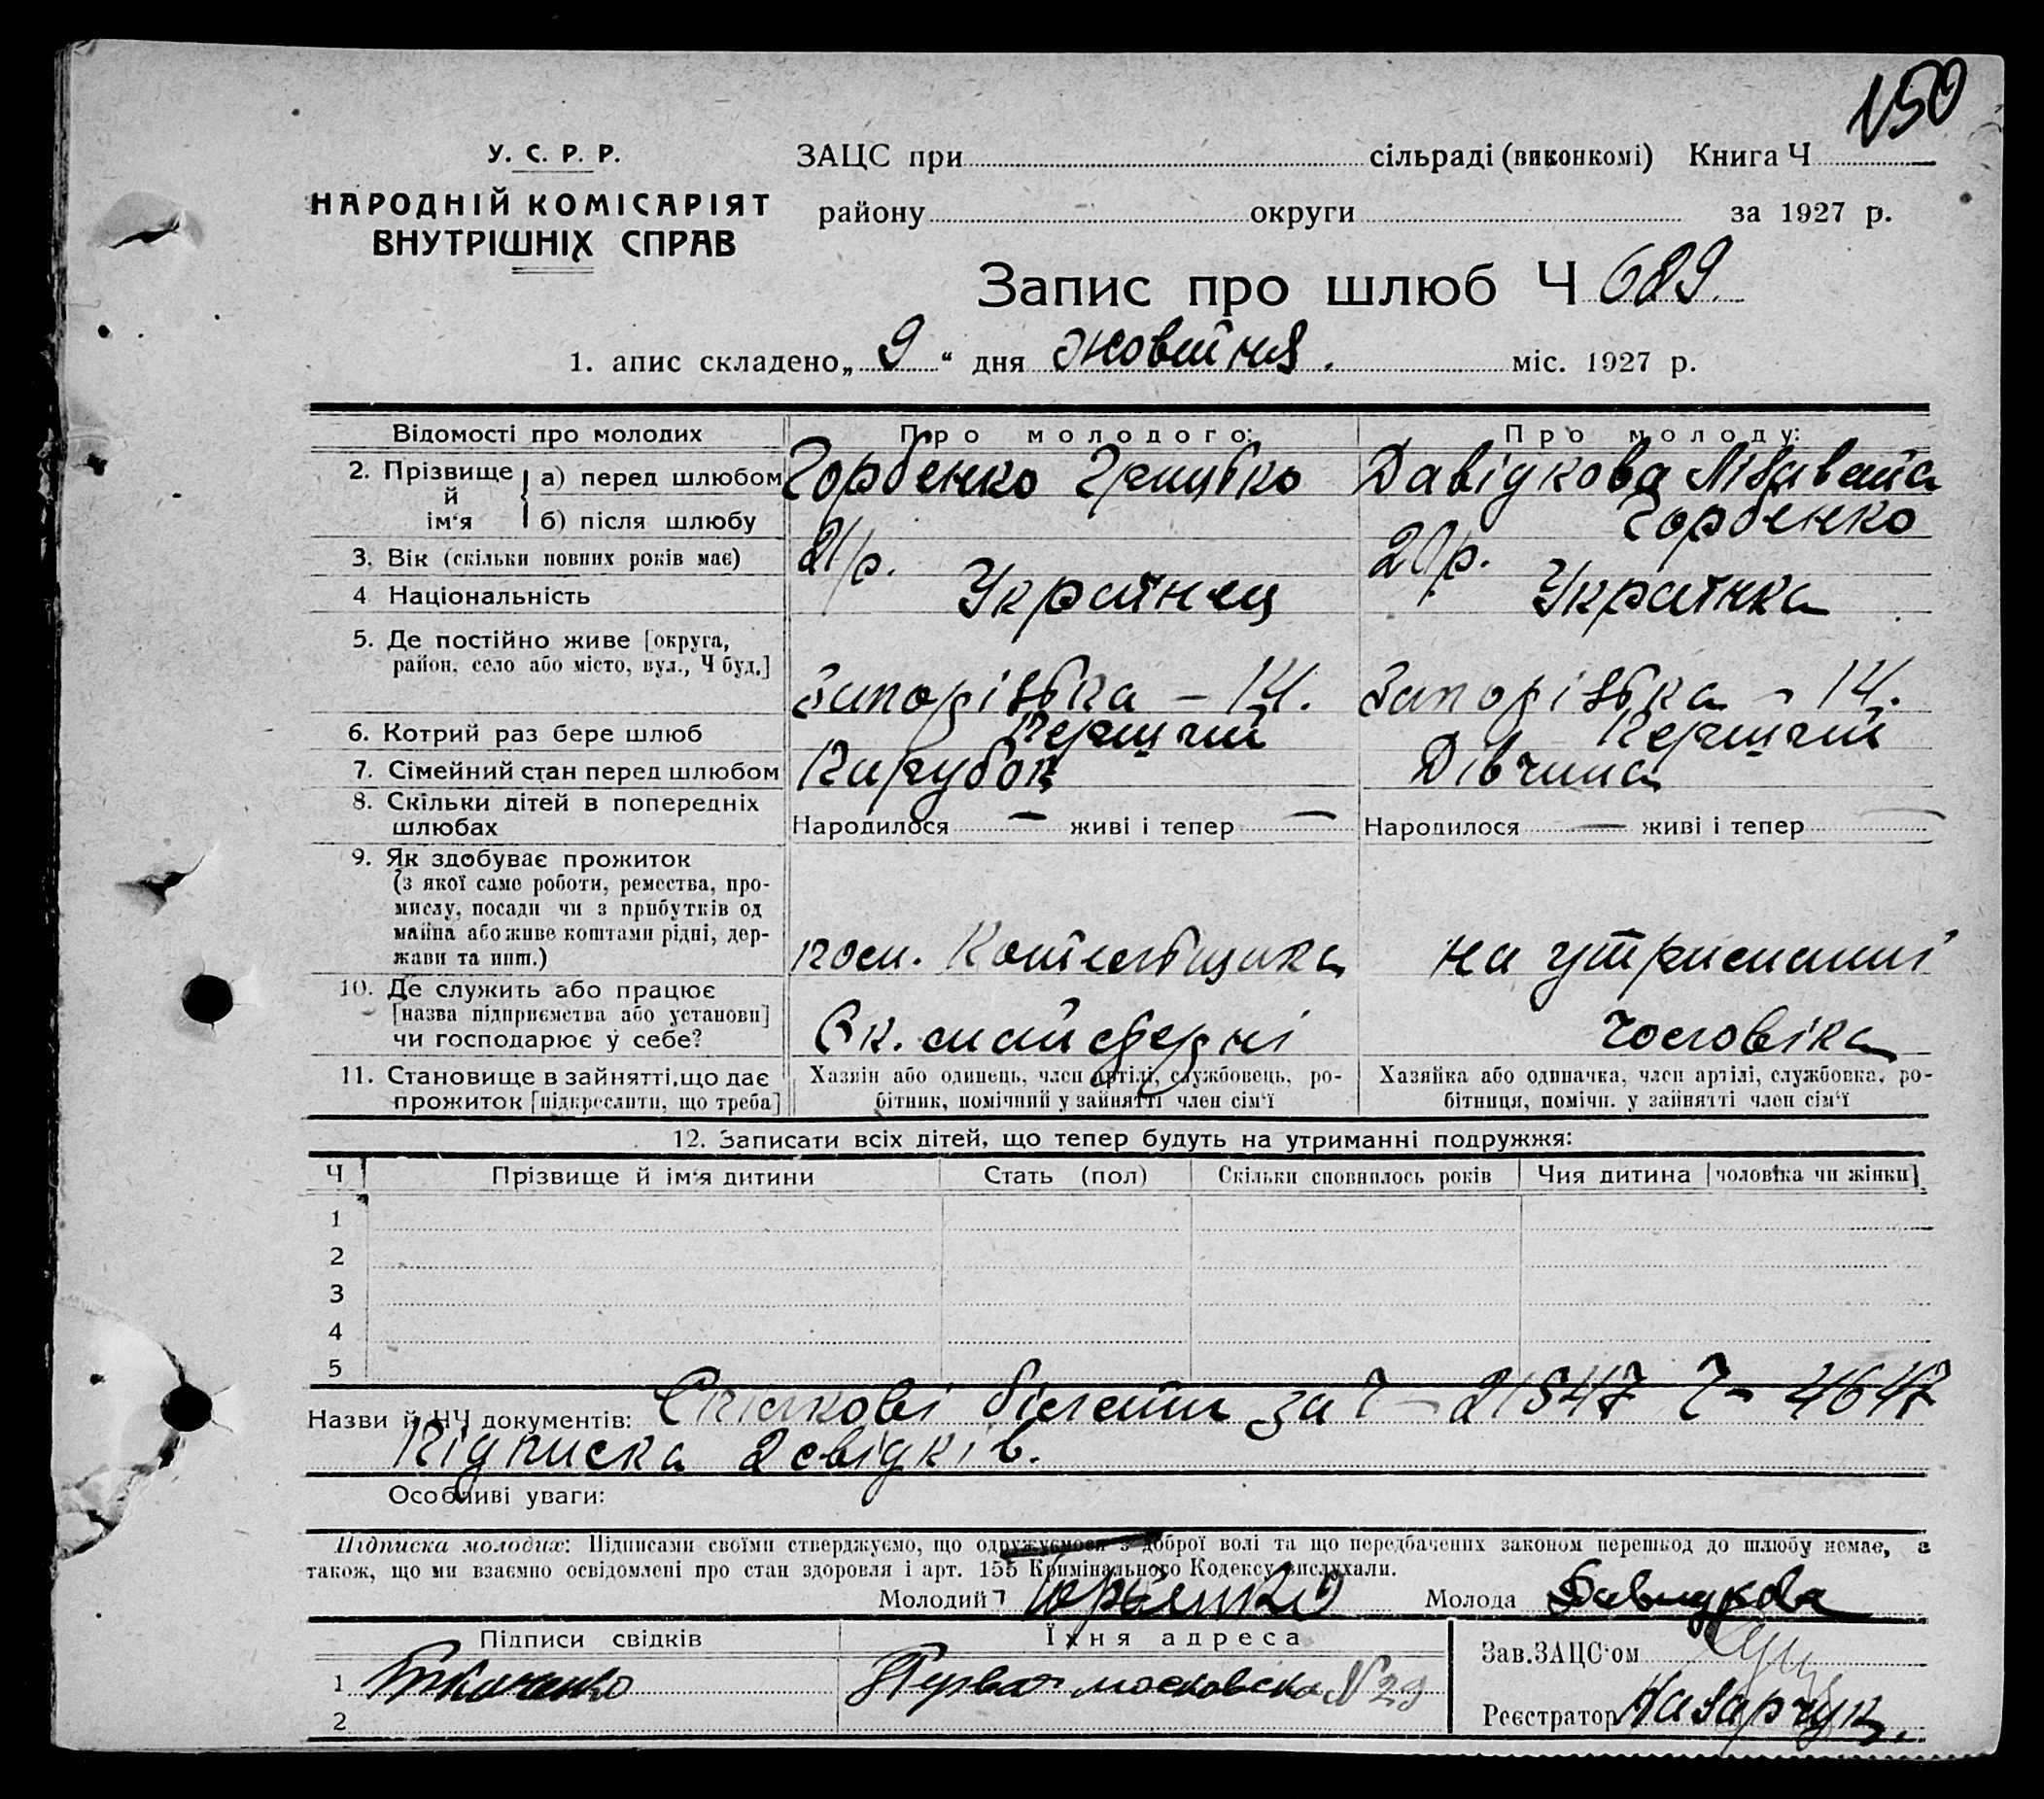 150
У. С. Р. Р.
НАРОДНІЙ КОМІСАРІЯТ
ВНУТРІШНІХ СПРАВ
ЗАЦС при сільраді (виконкомі) Книга Ч
району округи за 1927 р.
Запис про шлюб Ч 689.
1. апис складено „ 9 “ дня жовтня . міс. 1927 р.
Відомості про молодих Про молодого: Про молоду:
2. Прізвище й ім'я а) перед шлюбом Горбенко Грицько Давідкова Лізавета
б) після шлюбу Горбенко
3. Вік (скільки повних років має) 21/р. 20/р.
4 Національність Украінец Украінка
5. Де постійно живе [округа,
район, село або місто, вул., Ч буд.] Запорізька – 14. Запорізька – 14.
6. Котрий раз бере шлюб Перший Перший
7. Сімейний стан перед шлюбом Парубок Дівчина
8. Скільки дітей в попередніх
шлюбах Народилося — живі і тепер — Народилося — живі і тепер —
9. Як здобуває прожиток
(з якої саме роботи, ремества, про-
мислу, посади чи з прибутків од
майна або живе коштами рідні, дер-
жави та инш.) пом. Котельщика на утриманні
10. Де служить або працює
[назва підприємства або установи]
чи господарює у себе? майстерні чоловіка
11. Становище в зайнятті, що дає
прожиток [підкреслити, що треба]
Хазяїн або одинець, член артілі, службовець, ро-
бітник, помічний у зайнятті член сім'ї
Хазяйка або одиначка, член артілі, службовка, ро-
бітниця, помічн. у зайнятті член сім'ї
12. Записати всіх дітей, що тепер будуть на утриманні подружжя:
Ч Прізвище й ім'я дитини Стать (пол) Скільки сповнилось років Чия дитина [чоловіка чи жінки]
1
2
3
4
5
Назви й ЧЧ документів: Спілкові білети за Ч – 21547 Ч – 4647
Підписка 2 свідків.
Особливі уваги:
Підписка молодих: Підписами своїми стверджуємо, що одружуємося з доброї волі та що передбачених законом перешкод до шлюбу немає, а
також, що ми взаємно освідомлені про стан здоровля і арт. 155 Кримінального Кодексу вислухали.
Молодий Горбенко Молода Давидкова
Підписи свідків Їхня адреса Зав. ЗАЦС'ом
1 Ткаченко Первая московска N 29
2 Реєстратор Назарчук.